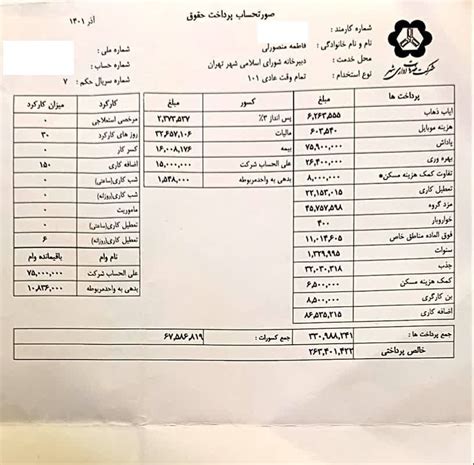 صورتحساب پرداخت حقوق
آذر ۱۴۰۱
شماره کارمند :
نام و نام خانوادگی : فاطمه منصورلی
محل خدمت : دبیرخانه شورای اسلامی شهر تهران
نوع استخدام : تمام وقت عادی ۱۰۱
شماره ملی :
شماره حساب :
شماره سریال حکم : ۷
پرداخت ها مبلغ
ایاب ذهاب ۶,۲۶۳,۵۵۵
هزینه موبایل ۶۰۳,۵۴۰
پاداش ۷۵,۹۰۰,۰۰۰
بهره وری ۲۶,۴۰۰,۰۰۰
تفاوت کمک هزینه مسکن* ۸,۰۰۰,۰۰۰
تعطیل کاری ۲۲,۱۵۳,۰۱۵
مزد گروه ۴۵,۷۵۷,۵۹۸
خواروبار ۴۰۰
فوق العاده مناطق خاص ۱۱,۰۱۴,۶۰۵
سنوات ۱,۳۲۹,۹۹۵
جذب ۳۲,۰۳۰,۳۱۸
کمک هزینه مسکن ۶,۵۰۰,۰۰۰
بن کارگری ۸,۵۰۰,۰۰۰
اضافه کاری ۸۶,۵۳۵,۲۱۵
کسور مبلغ
پس انداز ۳٪ ۲,۳۷۳,۵۳۷
مالیات ۳۲,۶۵۷,۱۰۶
بیمه ۱۶,۰۰۸,۱۷۶
علی الحساب شرکت ۱۵,۰۰۰,۰۰۰
بدهی به واحدمربوطه ۱,۵۴۸,۰۰۰
کارکرد میزان کارکرد
مرخصی استعلاجی ۰
روز های کارکرد ۳۰
کسر کار ۰
اضافه کاری ۱۵۰
شب کاری(ساعتی) ۰
شب کاری(روزانه) ۰
ماموریت ۰
تعطیل کاری(ساعتی) ۰
تعطیل کاری(روزانه) ۶
نام وام باقیمانده وام
علی الحساب شرکت ۷۵,۰۰۰,۰۰۰
بدهی به واحدمربوطه ۱۰,۸۳۶,۰۰۰
جمع پرداخت ها : ۳۳۰,۹۸۸,۲۴۱
جمع کسورات : ۶۷,۵۸۶,۸۱۹
خالص پرداختی ۲۶۳,۴۰۱,۴۲۲